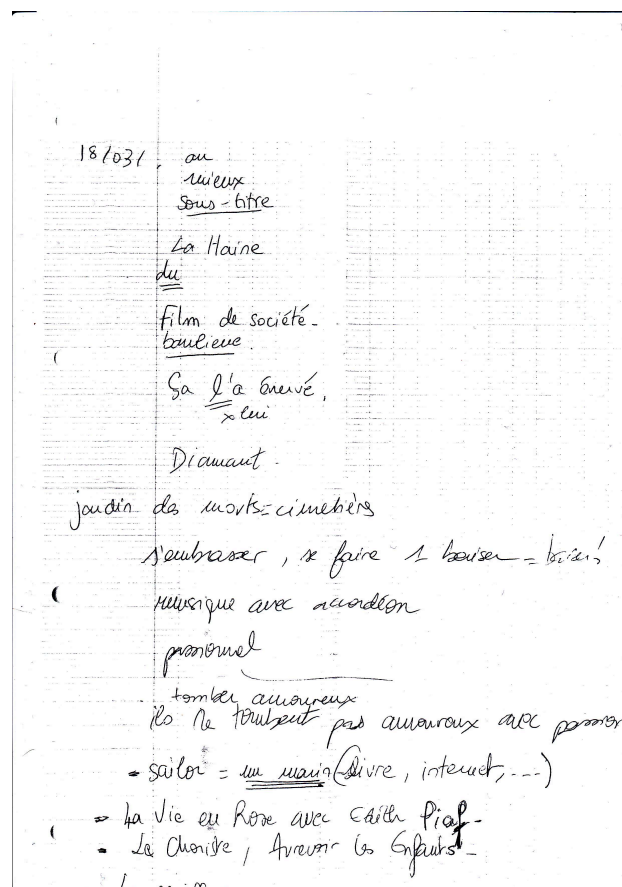 18/03/. au
mieux
sous-titre
La Haine
du
film de société-
banlieue.
Ça l'a énervé,
x lui
Diamant.
jardin des morts=cimetières
s'embrasser, se faire 1 baiser =
musique avec accordéon
passionnel
tomber amoureux
ils ne tombent pas amoureux avec passion
- sailor = un marin (livre, internet, ...)
- La Vie en Rose avec Edith Piaf-
- Le Choriste, Aurevoir les Enfants-